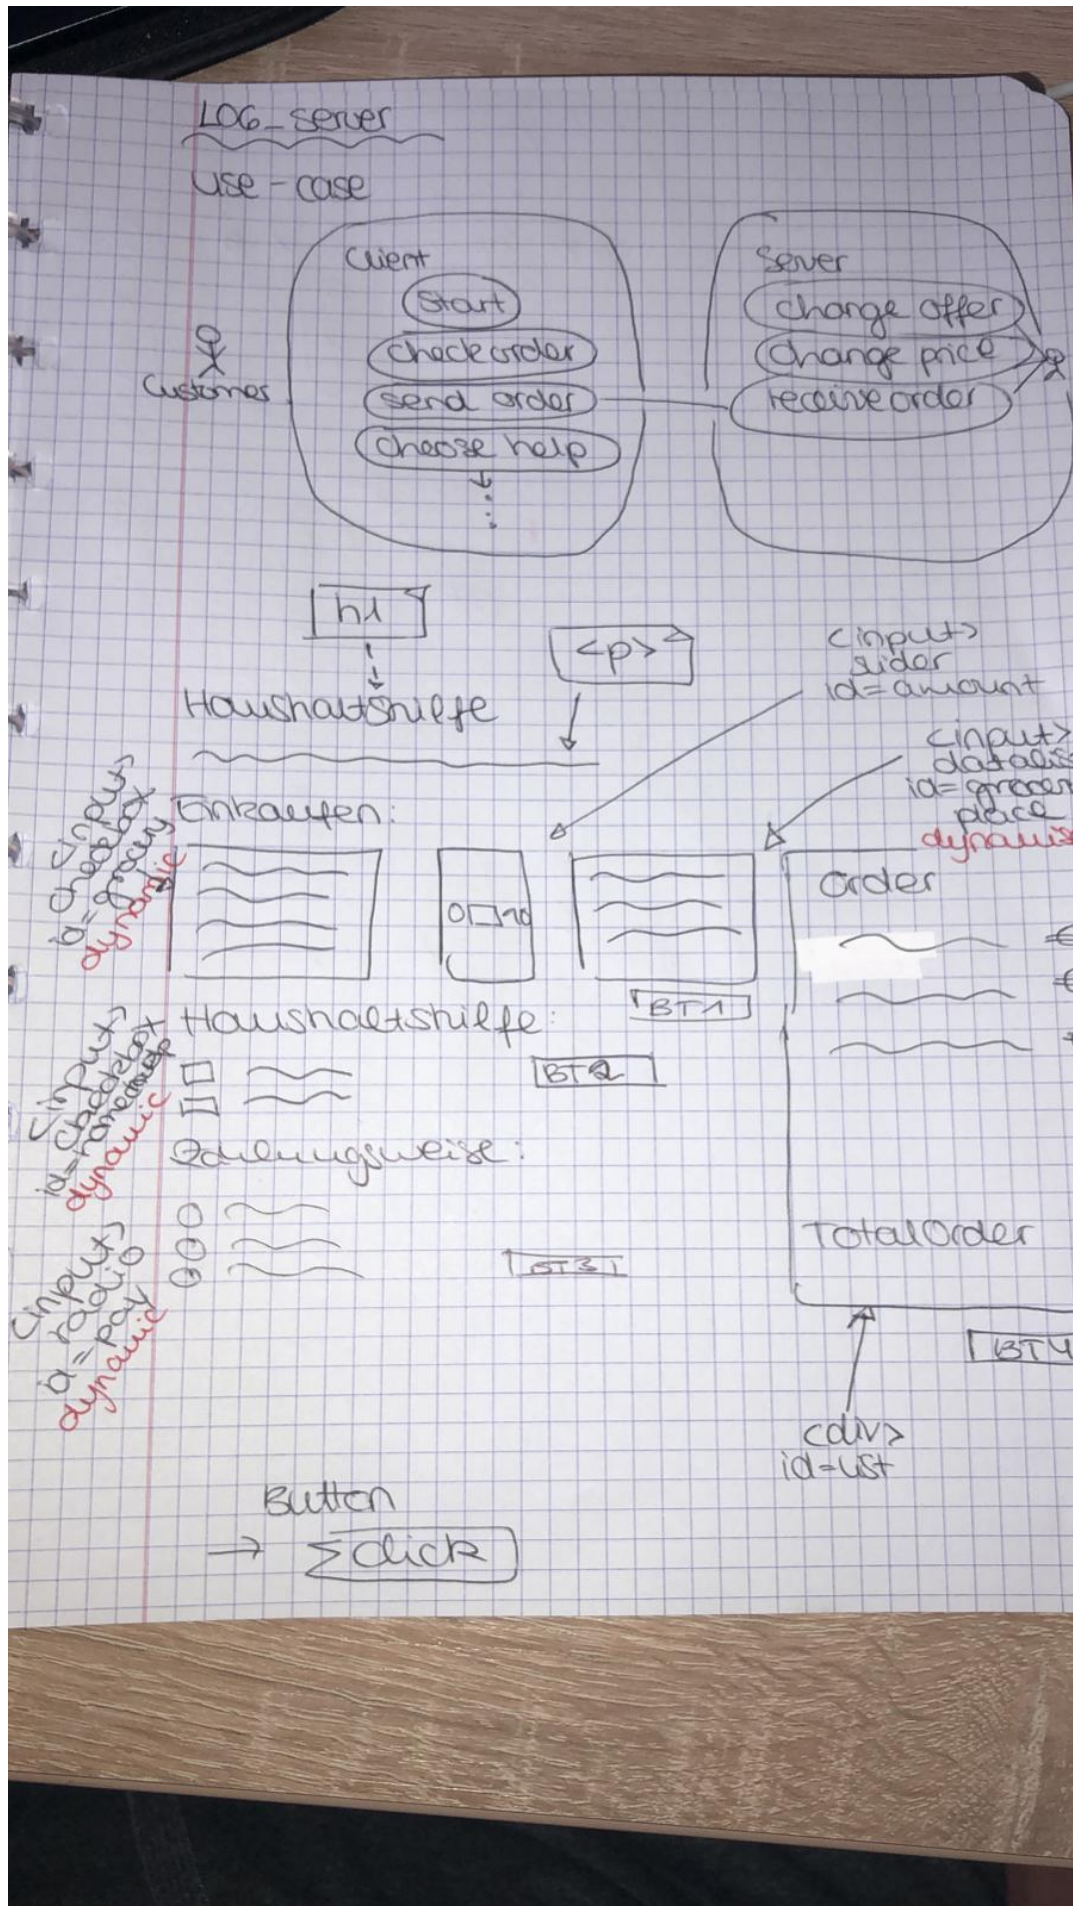 L06_server
use-case
Client
Start
check order
send order
choose help
Customer
Server
change offer
change price
receive order
h1
<p>
<input>
slider
id=amount
Haushaltshilfe
<input>
id=
place
Einkaufen:
<input>
checkbox
id=grocery
dynamic
0 10
BT1
Order
€
Haushaltshilfe:
<input>
checkbox
dynamic
BT2
Zahlungsweise:
<input>
radio
id=pay
dynamic
BT3
Total Order
BT4
<div>
id=list
Button
→ click